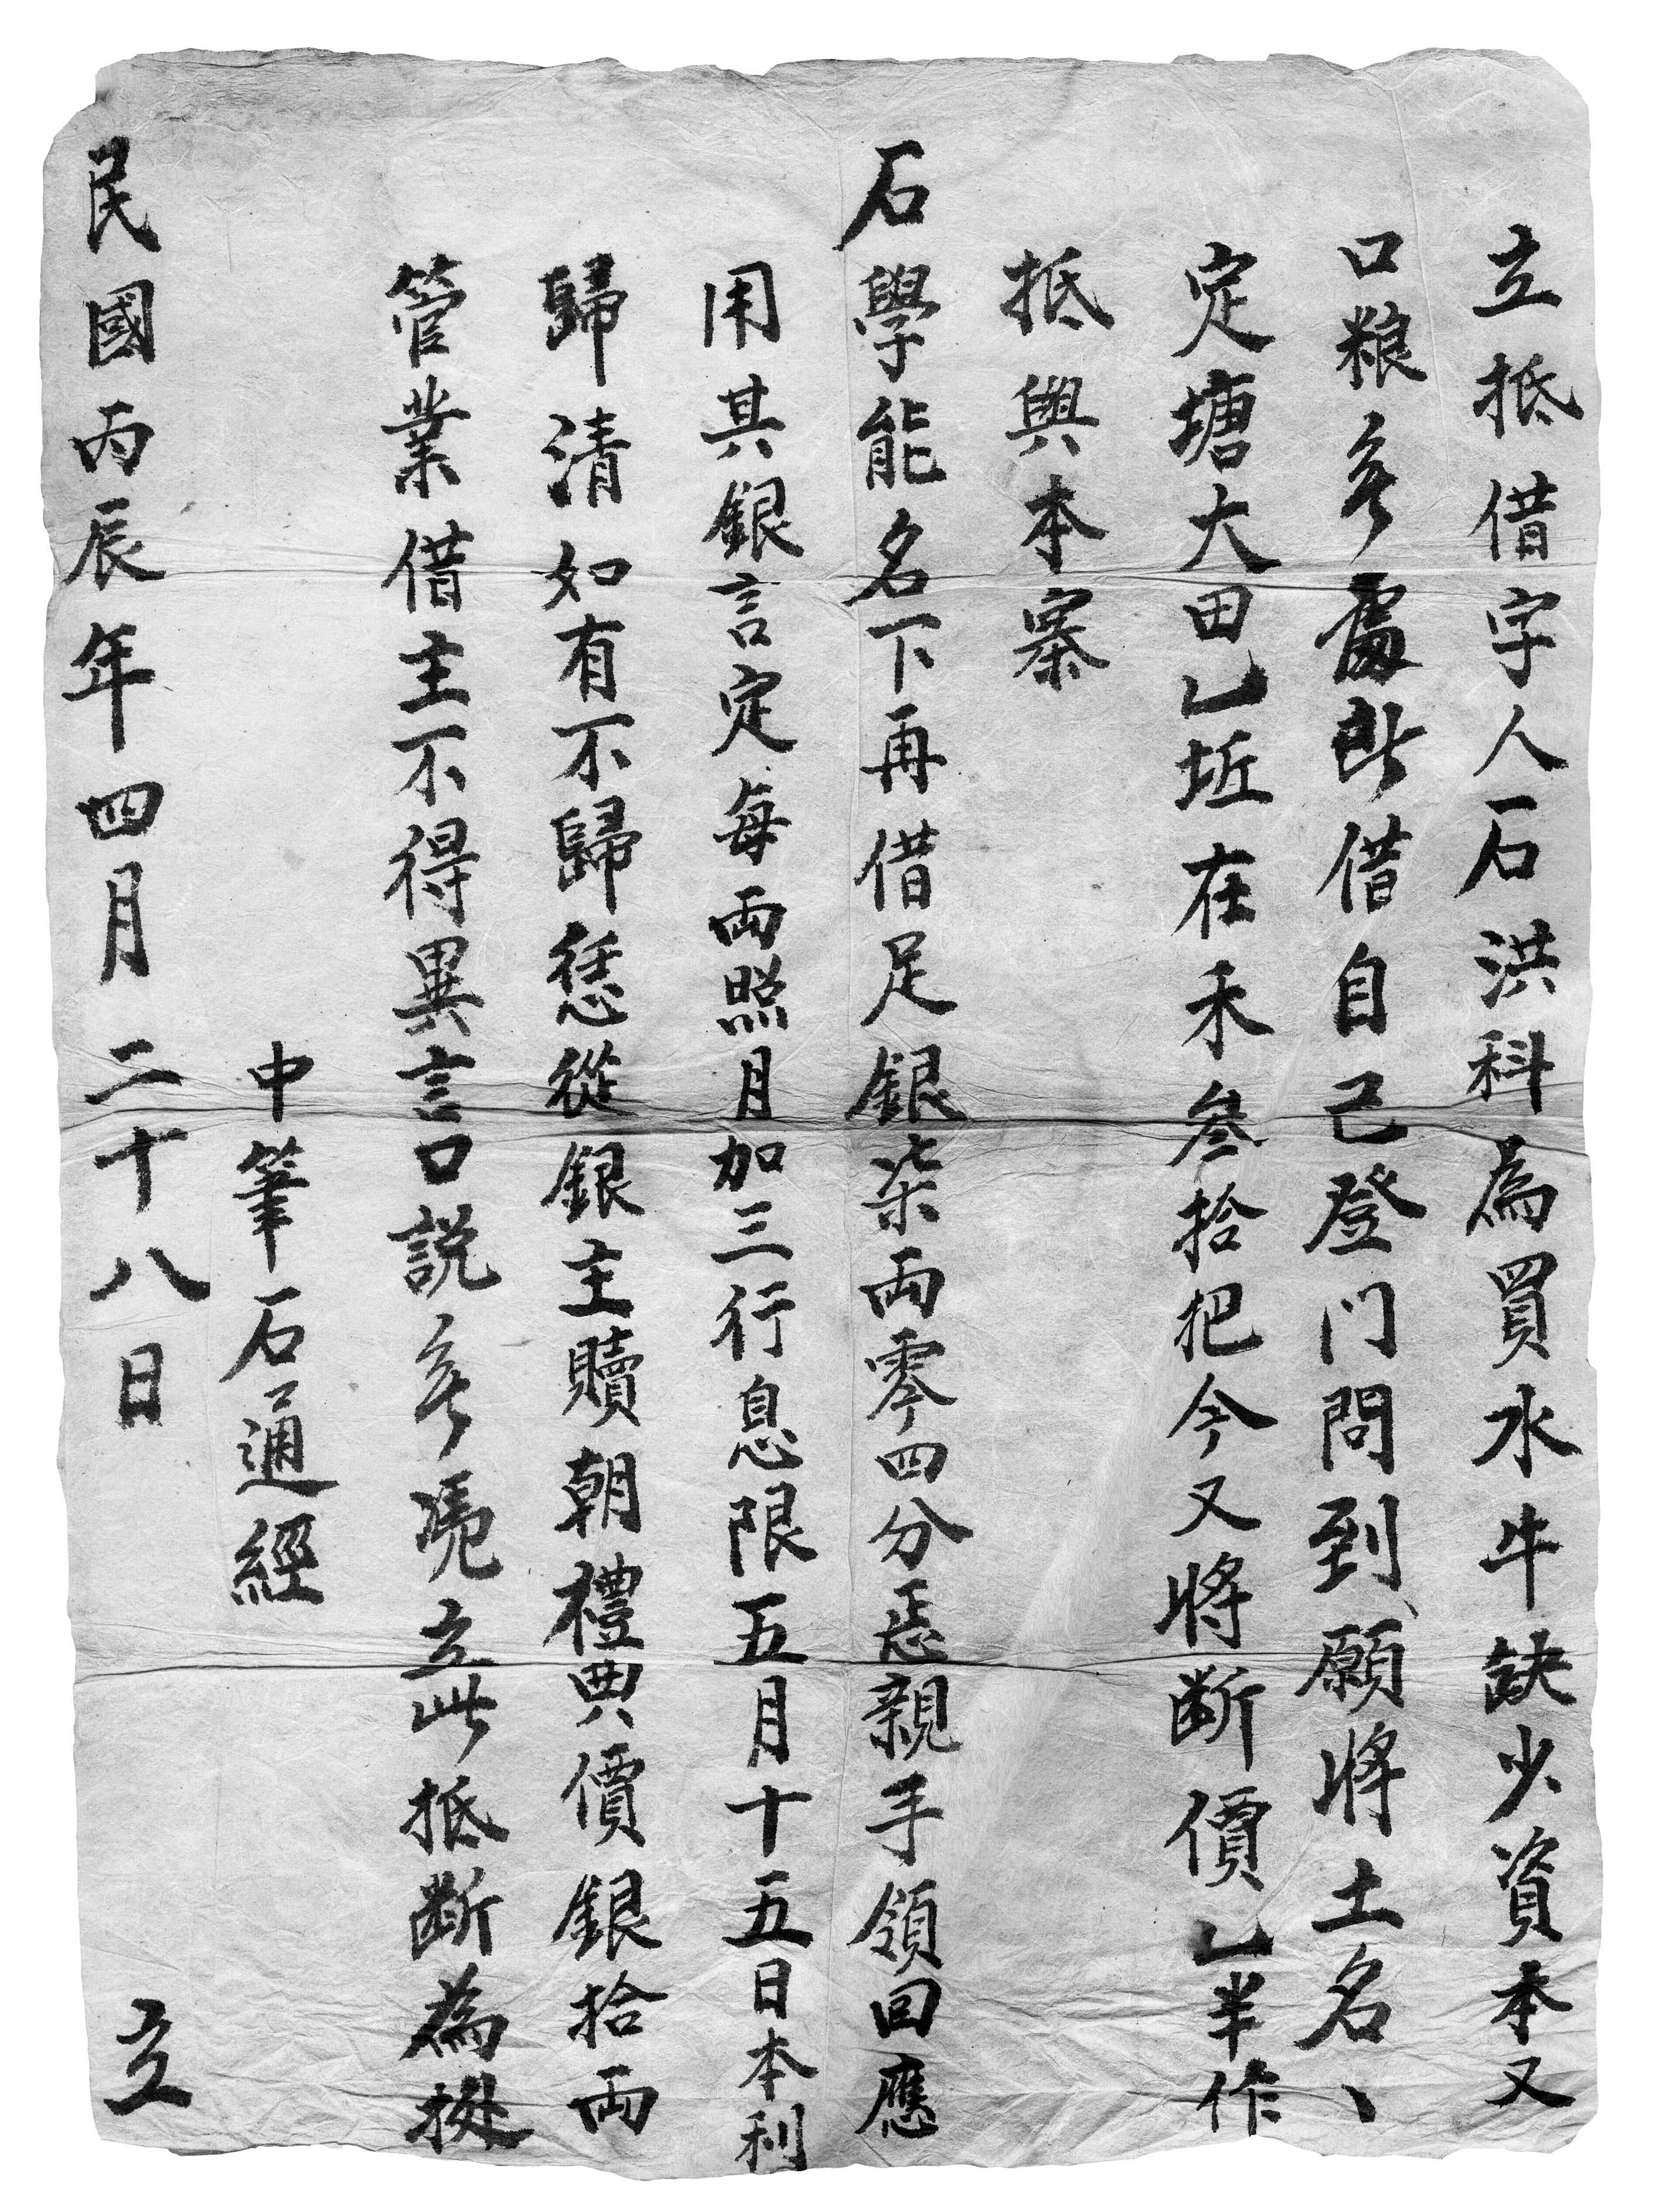 立抵借字人石洪科為買水牛缺少資本又
口粮無處所借自己登门問到願將土名、
定塘大田乚坵在禾叁拾把今又將断價乚半作
抵與本寨
石學能名下再借足銀柒両零四分恁親手領回應
用其銀言定每両照月加三行息限五月十五日本利
歸清如有不歸恁從銀主贖朝禮典價銀拾両
管業借主不得異言口説無凴立此抵断為據
中筆石通經
民國丙辰年四月二十八日 立